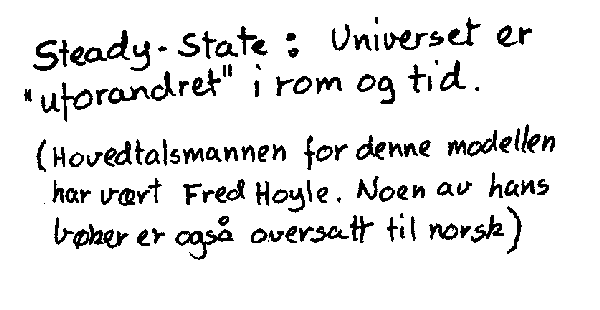 Steady-State: Universet er
"uforandret" i rom og tid.
(Hovedtalsmannen for denne modellen
har vært Fred Hoyle. Noen av hans
bøker er også oversatt til norsk)